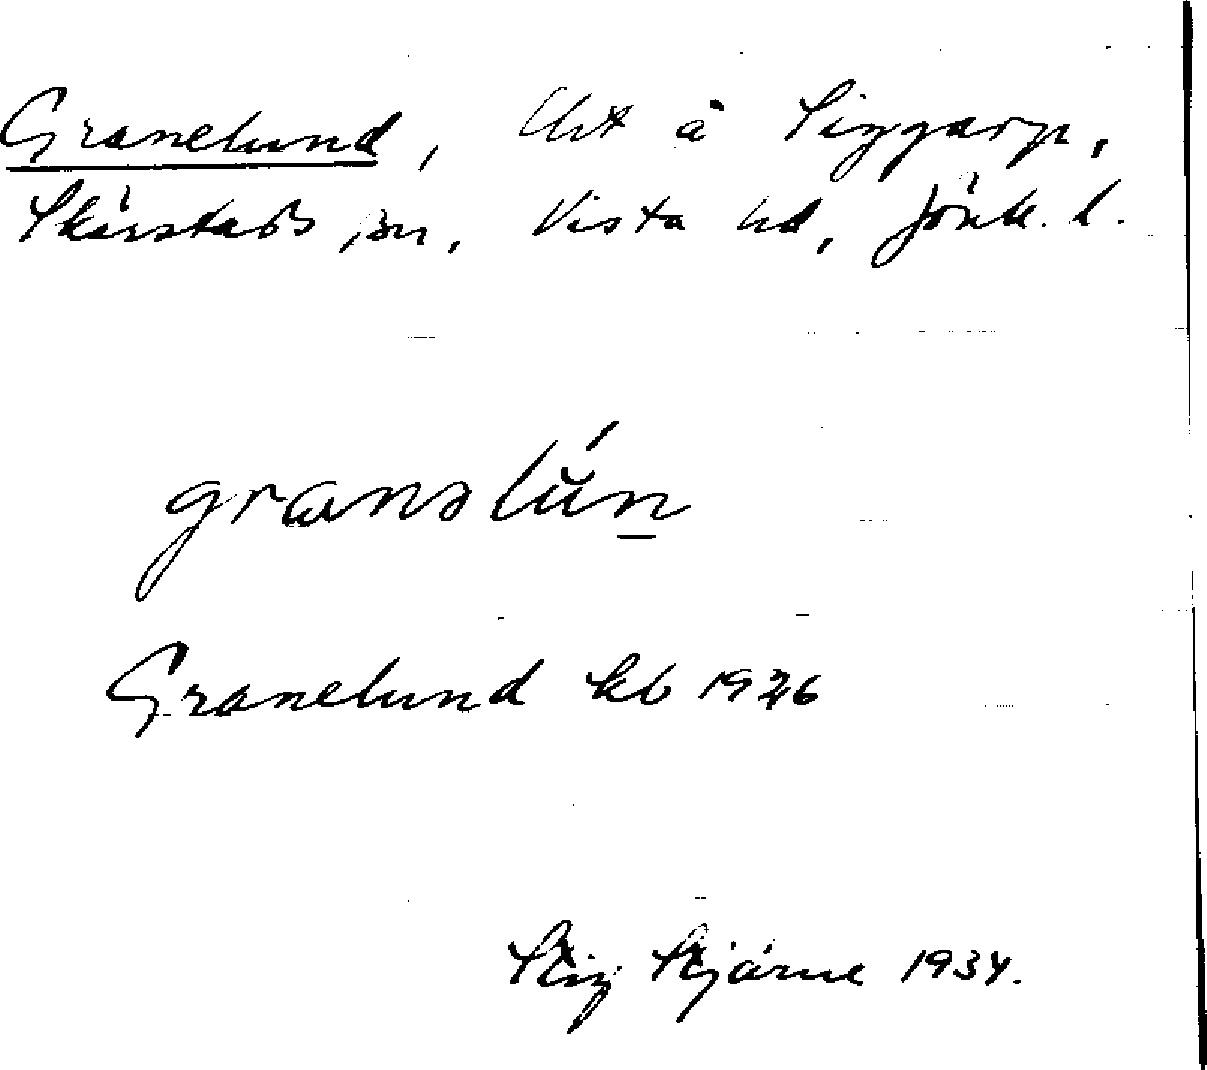 Granelund, lht å Siggarp,
Skärstads sn, Vista hd, Jönk. l.
granəlún
Granelund kb 1926
Stig Stjärne 1934.